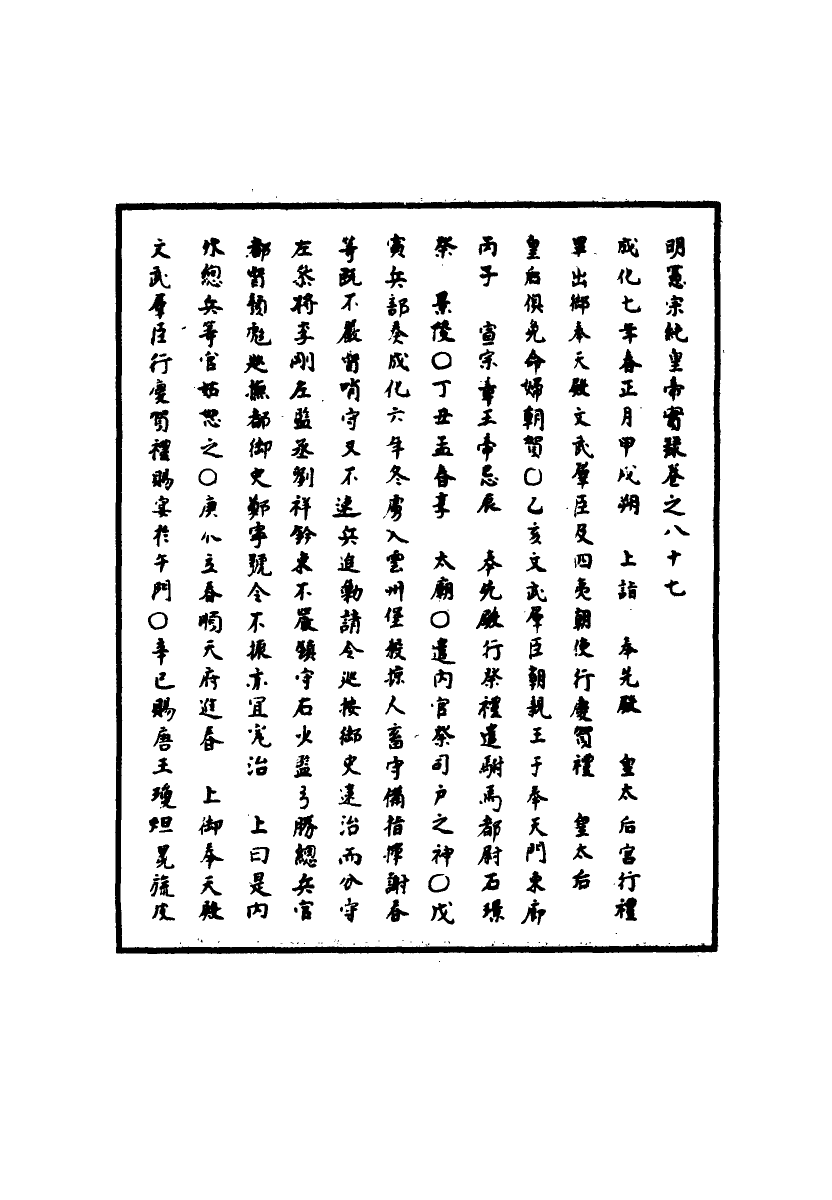 明憲宗純皇帝實録卷之八十七
成化七年春正月甲戌朔 上詣 奉先殿 皇太后宫行禮
畢出御奉天殿文武羣臣及四夷朝使行慶賀禮 皇太后
皇后俱免命婦朝賀〇乙亥文武羣臣朝親王于奉天門東廊
丙子 宣宗章王帝忌辰 奉先殿行祭禮遣駙馬都尉石璟
祭 景陵〇丁丑孟春享 太廟〇遣内官祭司户之神〇戊
寅兵部奏成化六年冬虜入雲州堡殺掠人畜守備指揮謝春
等既不嚴督哨守又不速兵追勦請令廵按御史逮治而分守
左叅將李剛左監丞劉祥鈐束不嚴鎮守右少監弓勝總兵官
都督顔彪廵撫都御史鄭寧號令不振亦宜究治 上曰是内
外總兵等官姑恕之〇庚辰立春順天府進春 上御奉天殿
文武羣臣行慶賀禮賜宴於午門〇辛巳賜唐王瓊烴冕旒皮